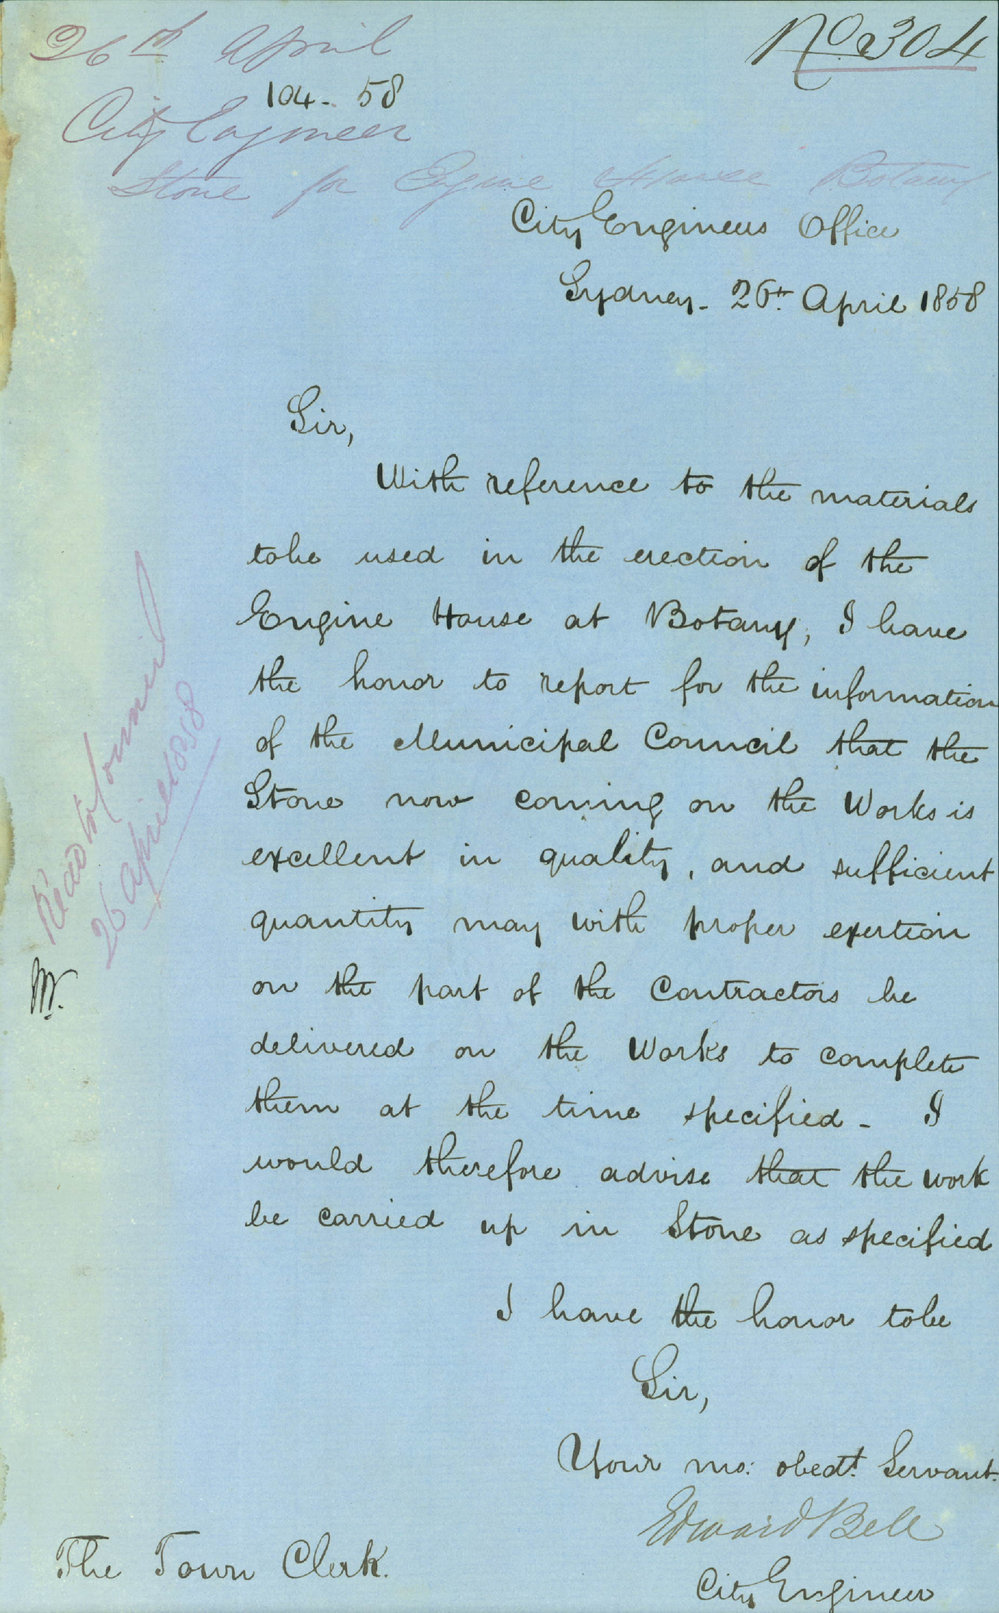 26th April
No 304
104-58
City Engineer
Stone for Engine House Botany
City Engineers Office
Sydney- 26th April 1858
Sir,
With reference to the materials
tobe used in the erection of the
Engine House at Botany, I have
the honor to report for the information
of the Municipal Council that the
Stone now coming on the Works is
excellent in quality, and sufficient
quantity may with proper exertion
on the part of the Contractors be
delivered on the Works to complete
them at the time specified- I
would therefore advise that the work
be carried up in Stone as specified
I have the honor tobe
Sir,
Your mo: obedt. Servant.
Edward Bell
City Engineer
The Town Clerk.
Read to Council
26 april 1858
M.